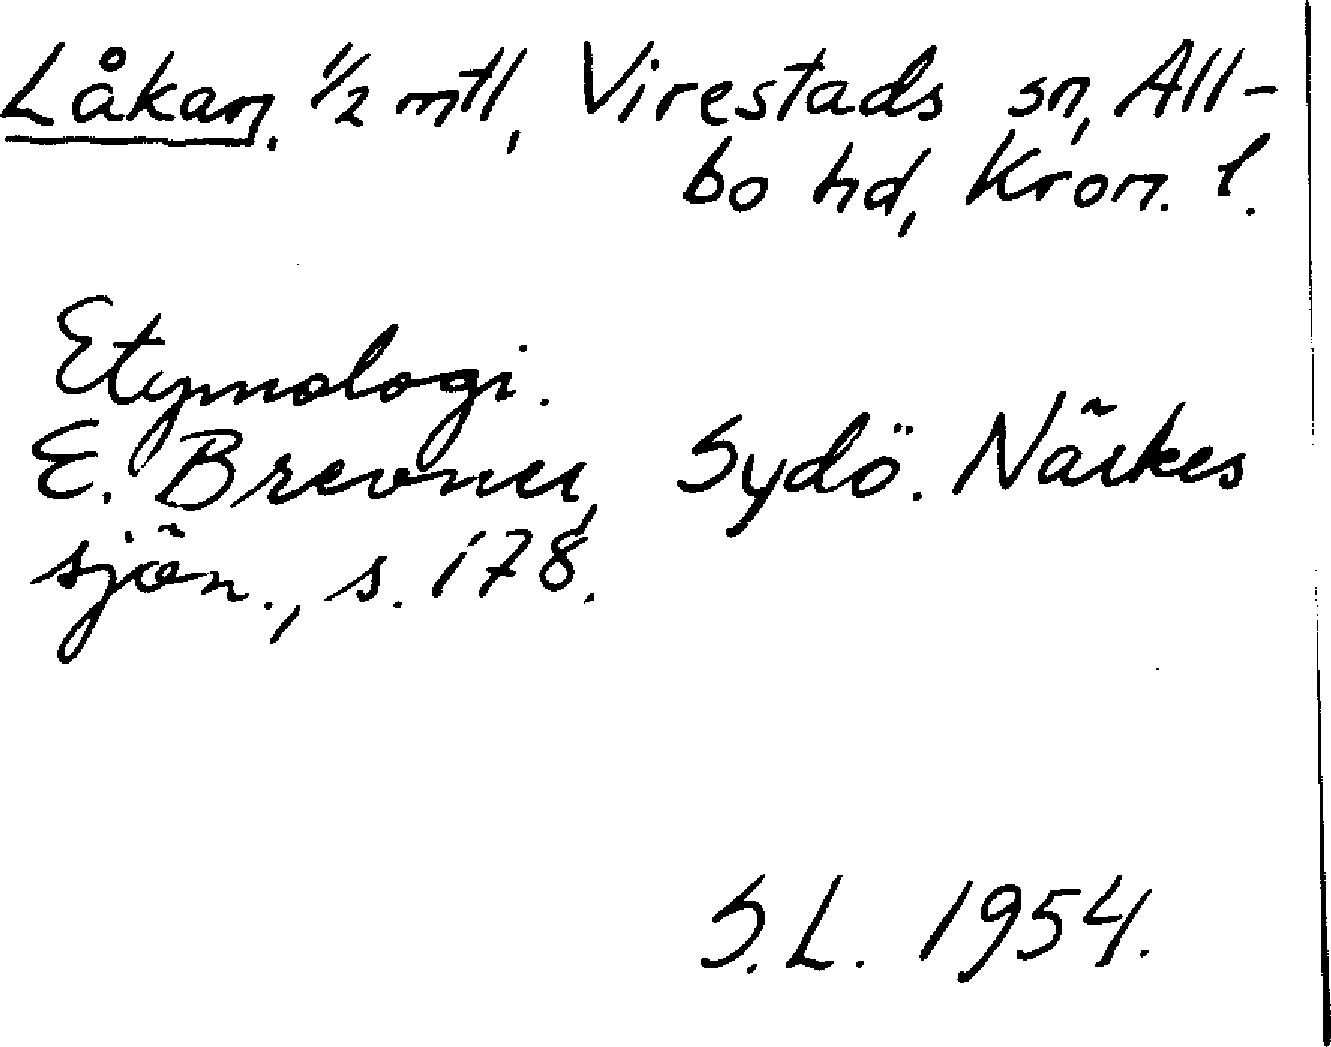 Låkan, 1/2 mtl, Virestads sn, All-
bo hd, Kron. l.
Etymologi.
E. Brevner, Sydö. Närkes
sjön., s. 178.
S.L. 1954.